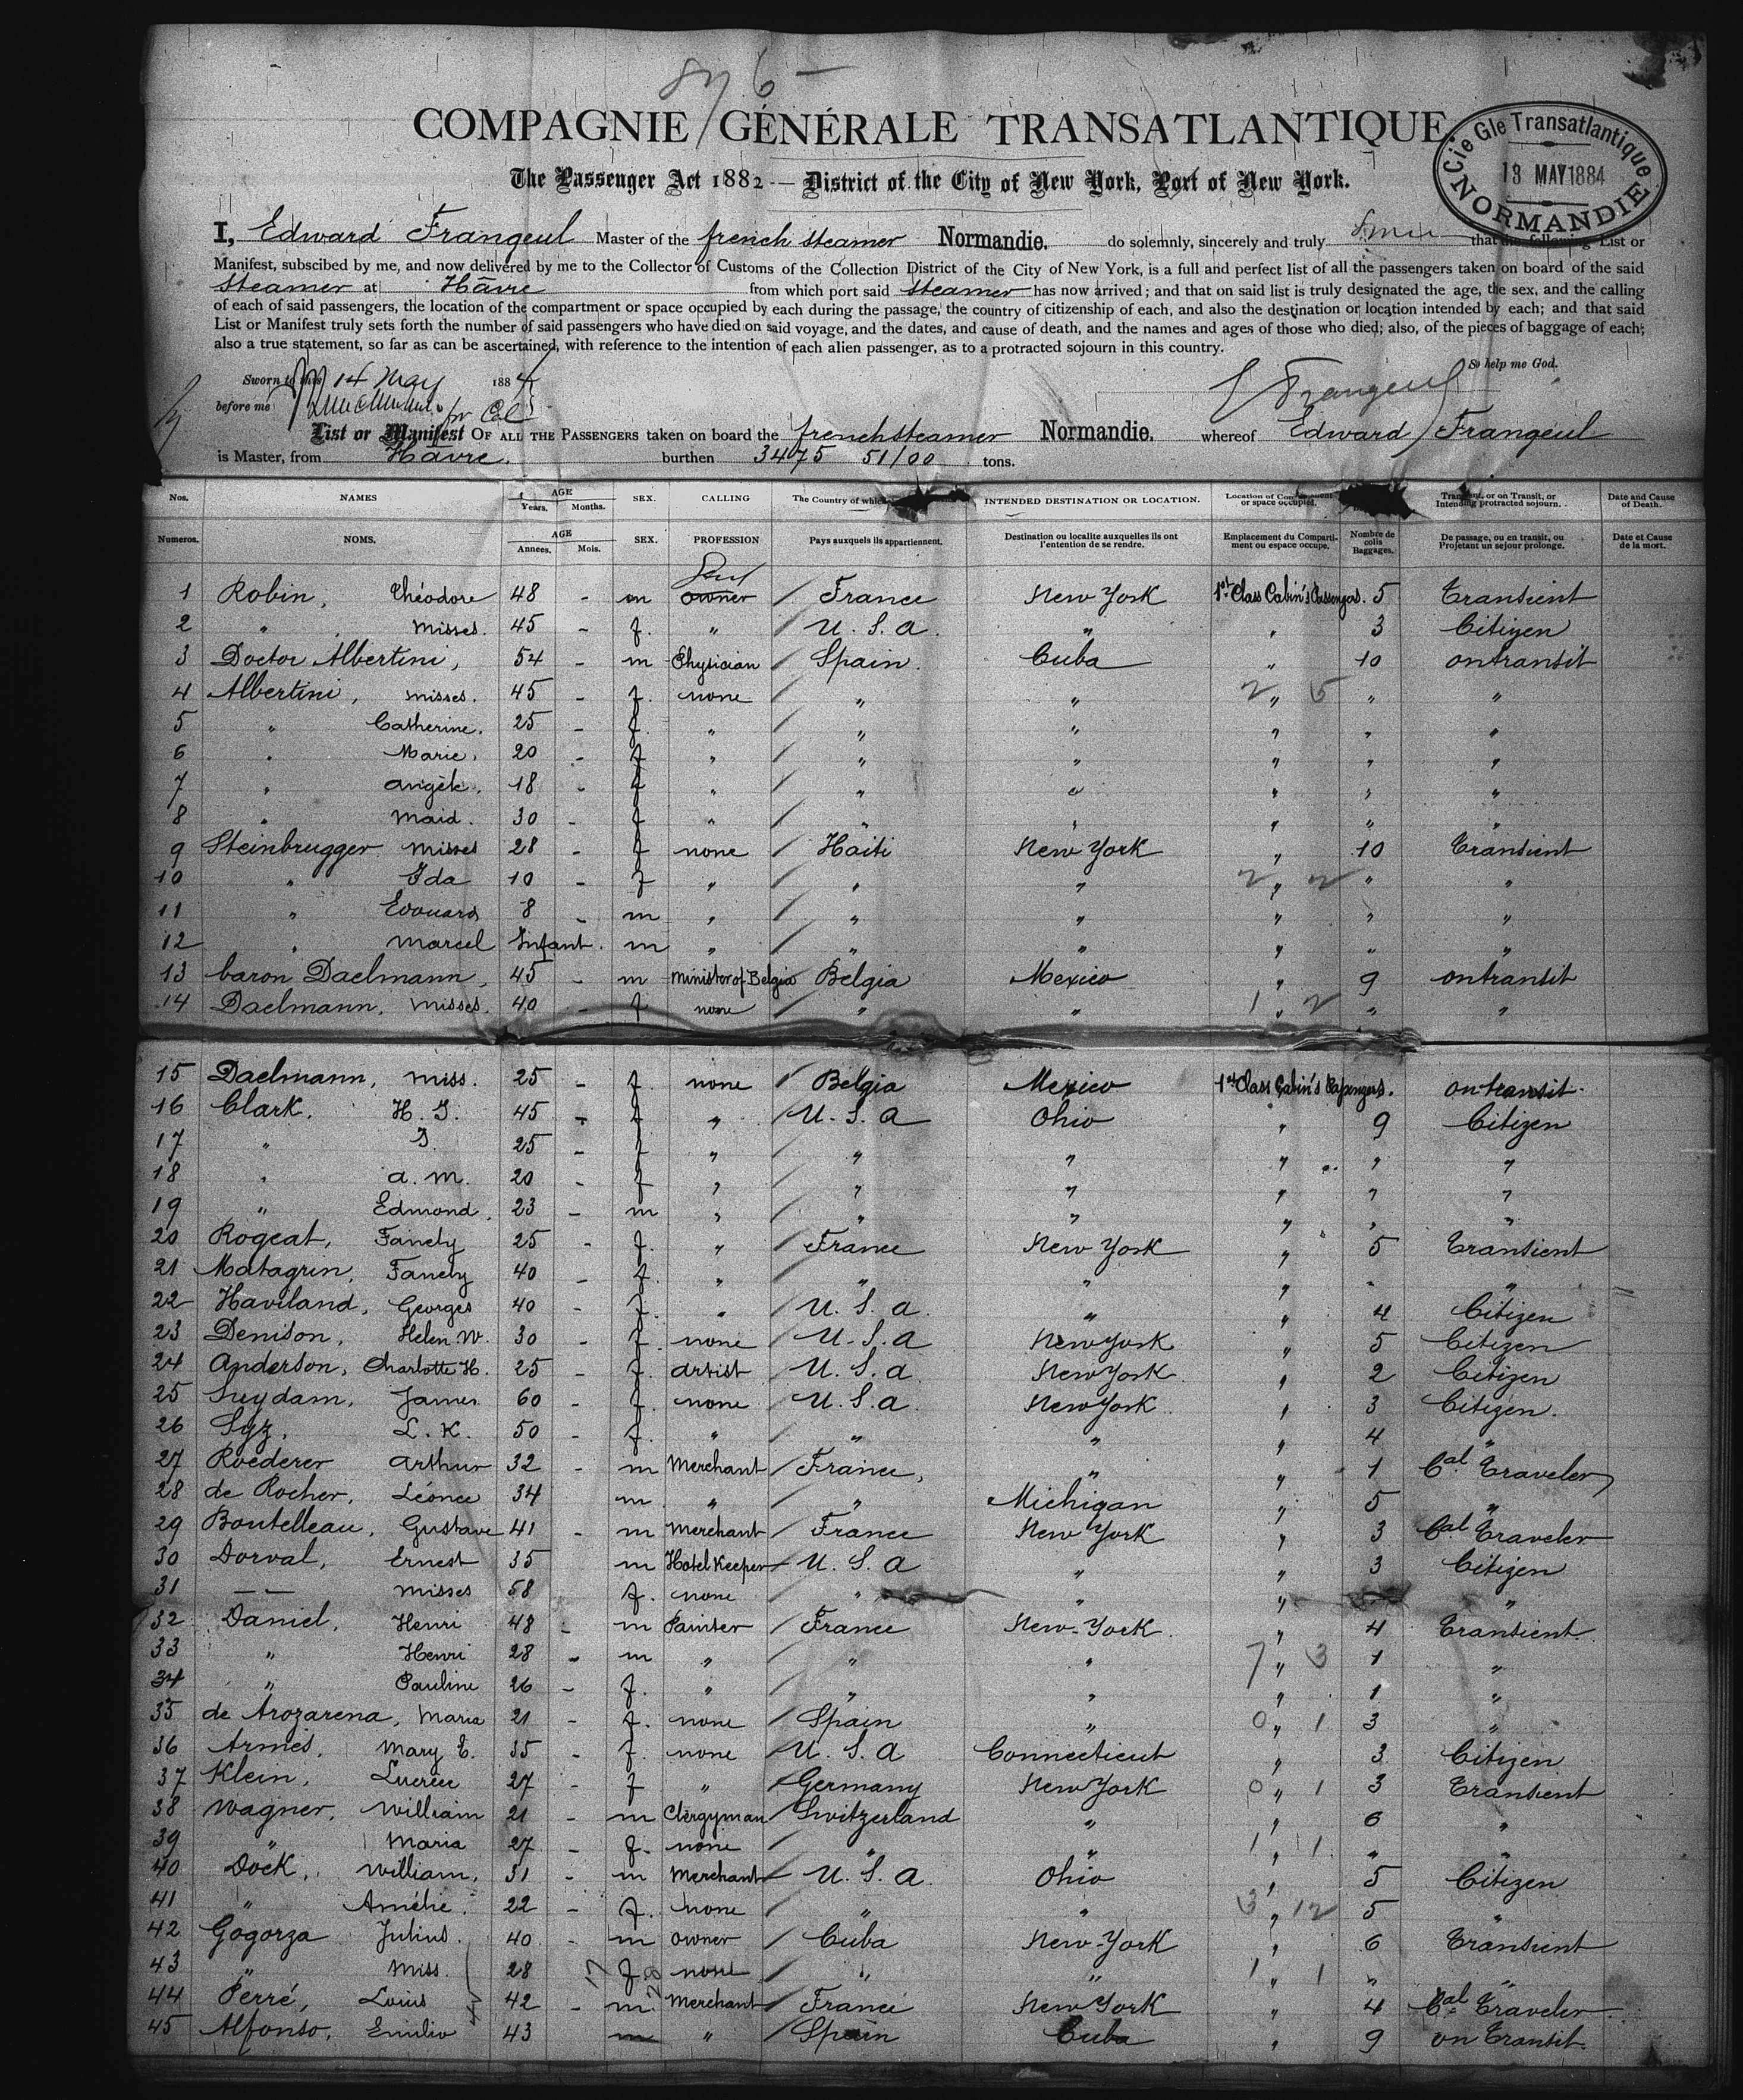 876 —
COMPAGNIE GÉNÉRALE TRANSATLANTIQUE
Cie Gle Transatlantique
13 MAY 1884
NORMANDIE
The Passenger Act 1882 — District of the City of New York, Port of New York.
I, Edward Frangeul Master of the french steamer Normandie. do solemnly, sincerely and truly that the following List or
Manifest, subscibed by me, and now delivered by me to the Collector of Customs of the Collection District of the City of New York, is a full and perfect list of all the passengers taken on board of the said
steamer at Havre from which port said steamer has now arrived; and that on said list is truly designated the age, the sex, and the calling
of each of said passengers, the location of the compartment or space occupied by each during the passage, the country of citizenship of each, and also the destination or location intended by each; and that said
List or Manifest truly sets forth the number of said passengers who have died on said voyage, and the dates, and cause of death, and the names and ages of those who died; also, of the pieces of baggage of each;
also a true statement, so far as can be ascertained, with reference to the intention of each alien passenger, as to a protracted sojourn in this country.
So help me God.
Sworn to this 14 May 1884
E Frangeul
before me for Col
List or Manifest OF ALL THE PASSENGERS taken on board the french steamer Normandie. whereof Edward Frangeul
is Master, from Havre. burthen 3475 51/00 tons.
Nos. NAMES AGE Years. Months. SEX. CALLING The Country of which INTENDED DESTINATION OR LOCATION. Location of Compartment or space occupied. Transient, or on Transit, or Intending protracted sojourn. Date and Cause of Death.
Numeros. NOMS. AGE Annees. Mois. SEX. PROFESSION Pays auxquels ils appartiennent. Destination ou localite auxquelles ils ont l'entention de se rendre. Emplacement du Compartiment ou espace occupe. Nombre de colis Baggages. De passage, ou en transit, ou Projetant un sejour prolonge. Date et Cause de la mort.
1 Robin, Théodore 48 - m owner France New York 1st Class Cabin's Passengers. 5 Transient
2 " Misses. 45 - f. " U. S. A. " " 3 Citizen
3 Doctor Albertini, 54 - m Physician Spain. Cuba " 10 on transit
4 Albertini, misses. 45 - f. none " " 2 " 5 " "
5 " Catherine. 25 - f. " " " " " "
6 " Marie. 20 - f " " " " " "
7 " Angèle. 18 - f " " " " " "
8 " Maid. 30 - f " " " " " "
9 Steinbrugger Misses 28 - f none Haiti New York " 10 Transient
10 " Ida 10 - f " " " 2 " 2 " "
11 " Edouard 8 - m " " " " " "
12 " Marcel Infant. m " " " " " "
13 baron Daelmann, 45 - m Minister of Belgia Belgia Mexico " 9 on transit
14 Daelmann, Misses. 40 - f none " " 1 " 2 " "
15 Daelmann, miss. 25 - f. none Belgia Mexico 1st Class Cabin's Passengers. on transit.
16 Clark. H. J. 45 - f " U. S. A Ohio " 9 Citizen
17 " J. 25 - f " " " " " "
18 " A. M. 20 - f " " " " " "
19 " Edmond. 23 - m " " " " " "
20 Rogeat, Fanely 25 - f. " France New York " 5 Transient
21 Matagrin, Fanely 40 - f. " " " " - "
22 Haviland, Georges 40 - f. " U. S. A. " " 4 Citizen
23 Denison, Helen W. 30 - f. none U. S. A New York " 5 Citizen
24 Anderson, Charlotte H. 25 - f. artist U. S. A New York. " 2 Citizen
25 Suydam, James 60 - f. none U. S. A. New York " 3 Citizen.
26 Syz, L. K. 50 - f. " " " " 4 "
27 Roederer Arthur 32 - m Merchant France, " " 1 Cal Traveler
28 de Rocher, Léonce 34 m " " Michigan " 5 "
29 Boutelleau, Gustave 41 - m Merchant France New York " 3 Cal Traveler
30 Dorval, Ernest 35 m Hotel Keeper U. S. A " " 3 Citizen
31 — — Misses 58 f. none " " " "
32 Daniel, Henri 48 - m Painter France New-York. " 4 Transient
33 " Henri 28 - m " " " 7 " 3 1 "
34 " Pauline 26 - f. " " " " 1 "
35 de Arozarena, Maria 21 - f. none Spain " 0 " 1 3 "
36 Armes, Mary E. 35 - f. none U. S. A Connecticut " 3 Citizen
37 Klein, 27 - f " Germany New York 0 " 1 3 Transient
38 Wagner, William 21 - m Clergyman Switzerland " " 6 "
39 " Maria 27 - f. none " " 1 " 1 " "
40 Dock, William, 31 - m Merchant U. S. A. Ohio " 5 Citizen
41 " Amélie. 22 - f. none " " 3 " 12 5 "
42 Gogorza Julius. 40 - m owner Cuba New-York " 6 Transient
43 " Miss. 28 17 f none " " 1 " 1 " "
44 Perré, Louis 42 - m. 28 Merchant France New York " 4 Cal Traveler
45 Alfonso, Emilio 43 m " Spain Cuba " 9 on Transit.